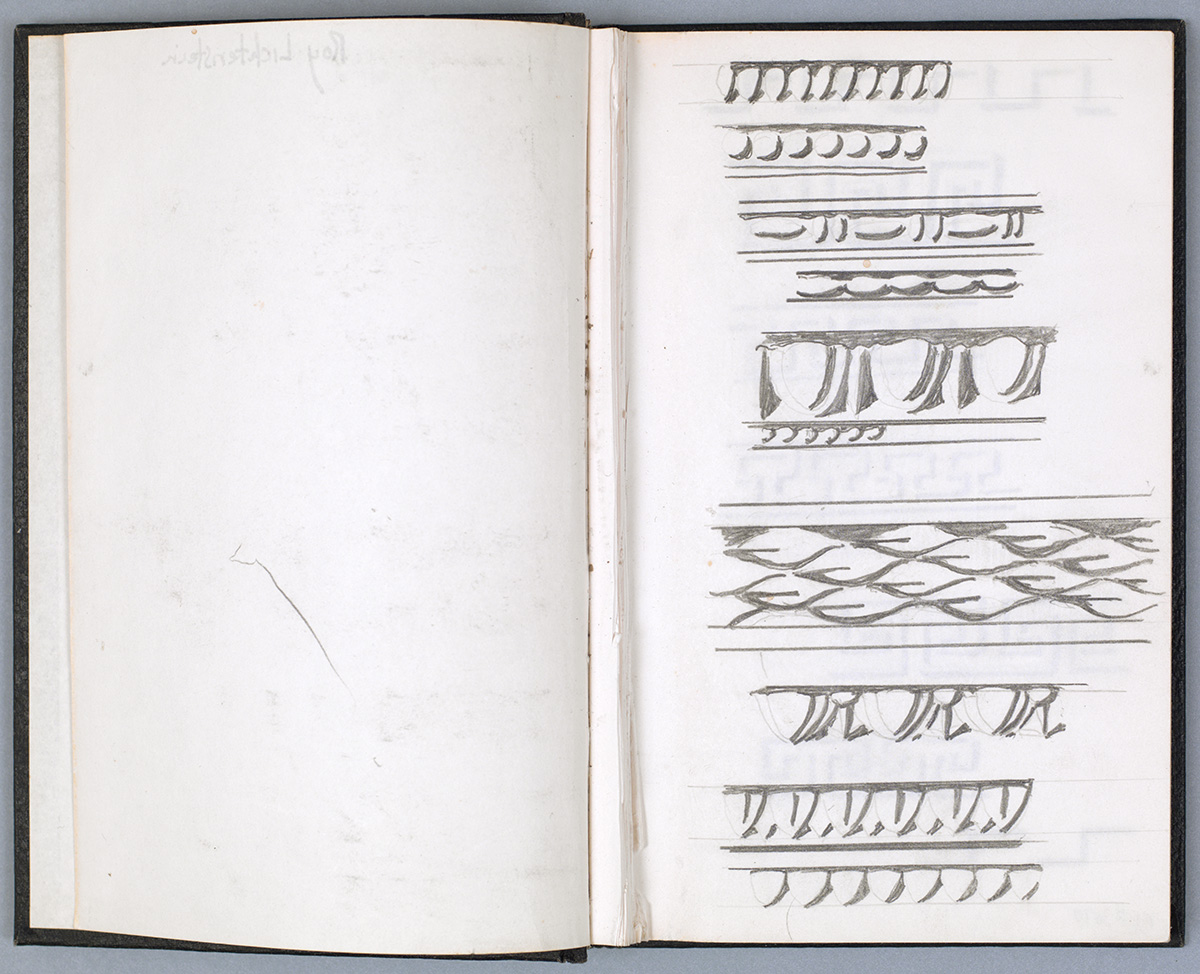 Roy Lichtenstein